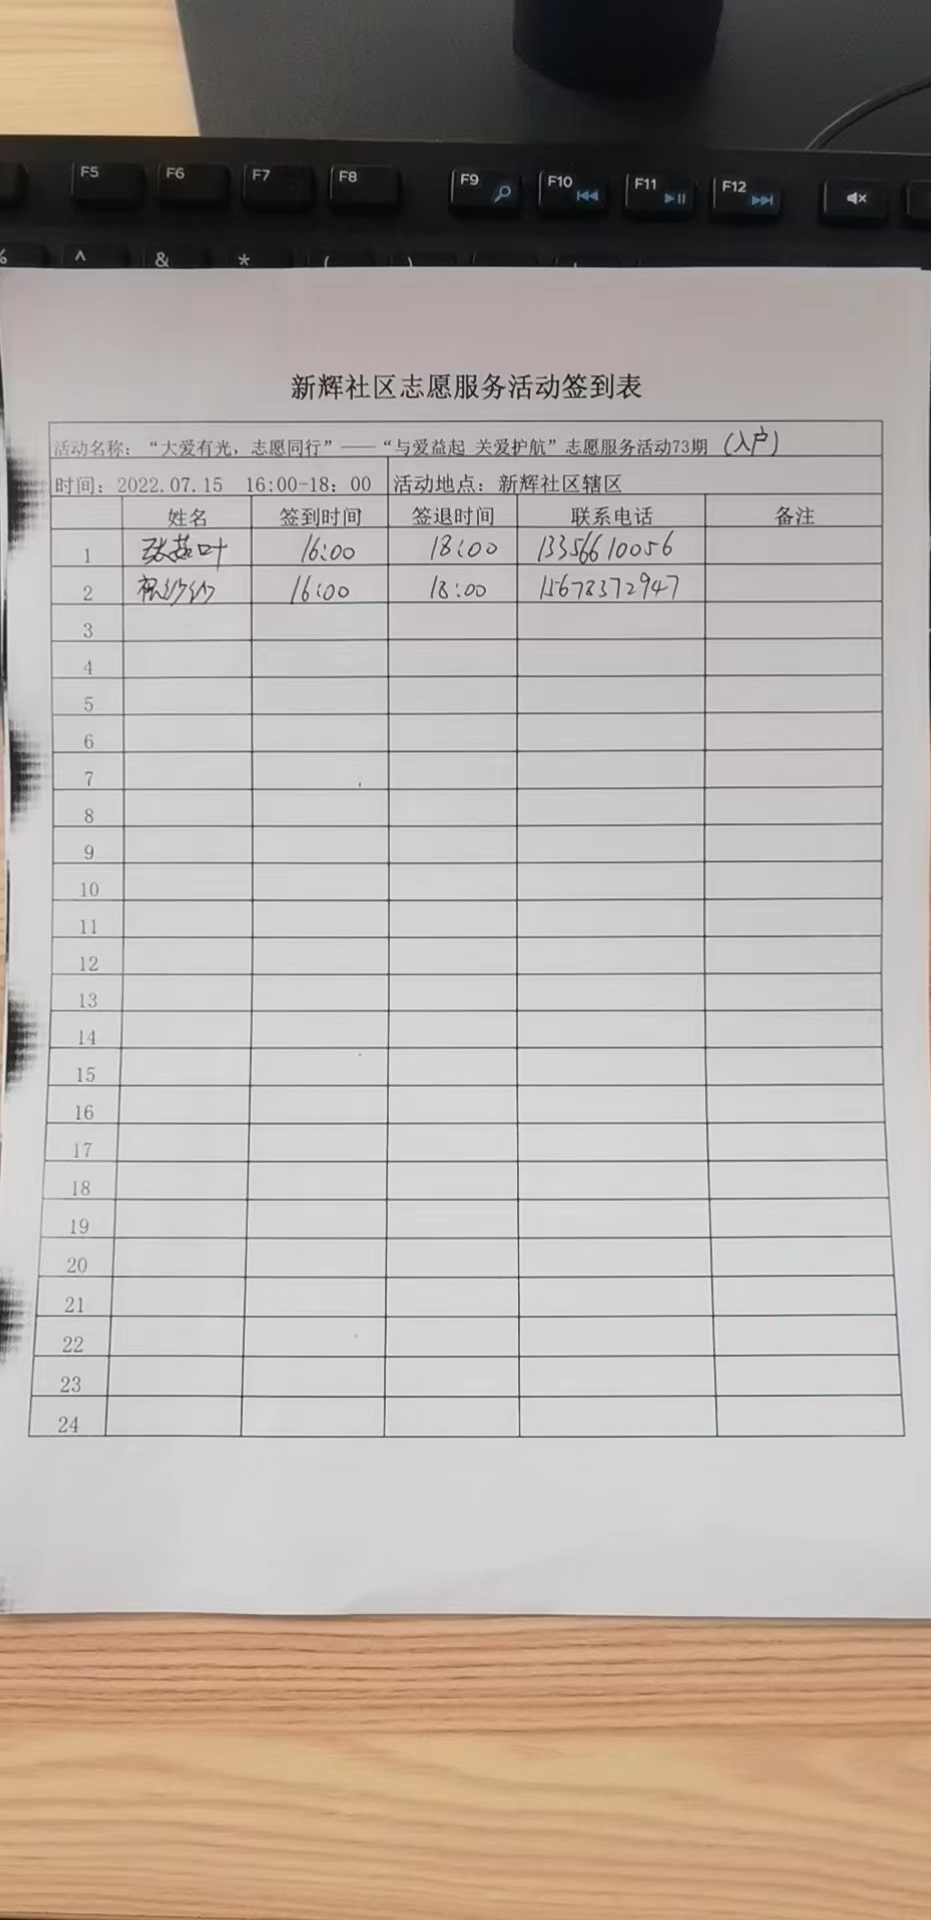 F5 F6 F7 F8 F9 F10 F11 F12
% ^ & * ( )
新辉社区志愿服务活动签到表
活动名称：“大爱有光，志愿同行”——“与爱益起 关爱护航”志愿服务活动73期（入户）
时间：2022.07.15 16:00-18：00 活动地点：新辉社区辖区
姓名 签到时间 签退时间 联系电话 备注
1 16:00 18:00 13356610056
2 16:00 18:00 15678372947
3
4
5
6
7
8
9
10
11
12
13
14
15
16
17
18
19
20
21
22
23
24